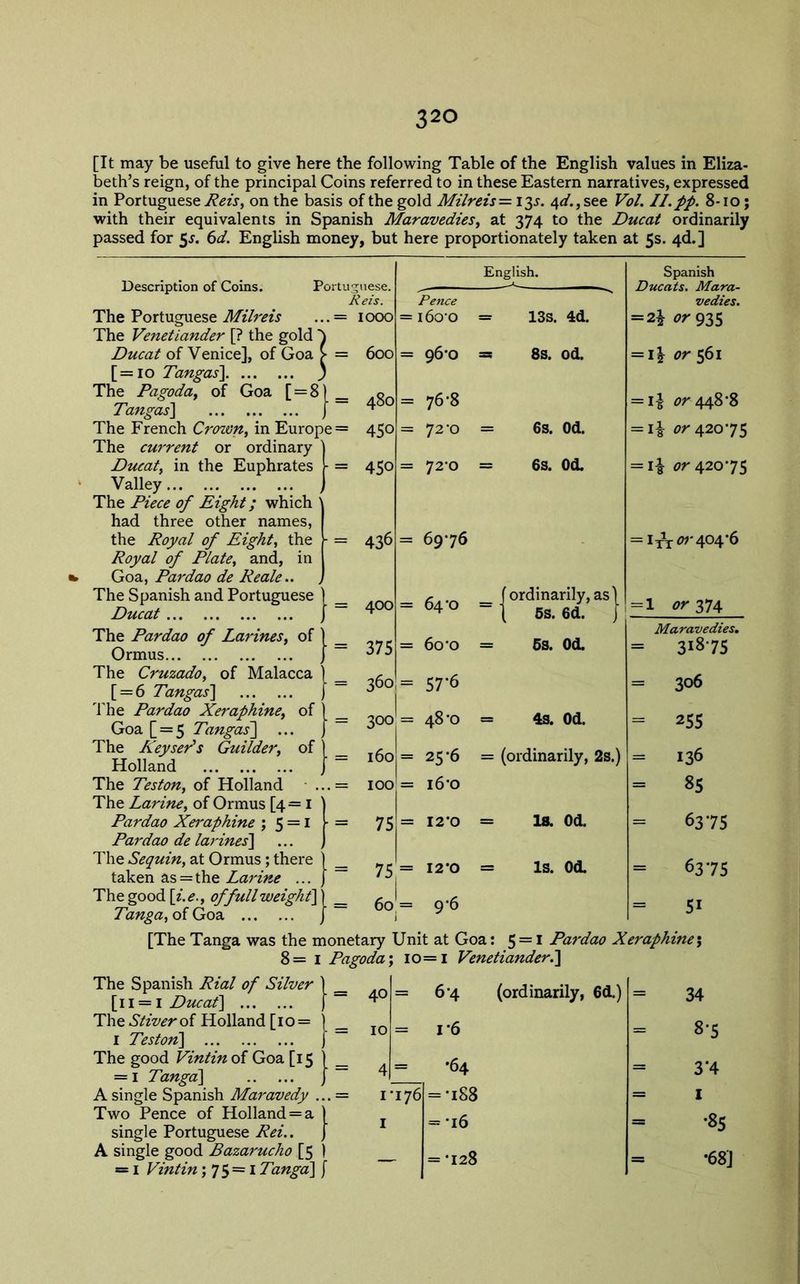 320
[It may be useful to give here the following Table of the English values in Eliza-
beth's reign, of the principal Coins referred to in these Eastern narratives, expressed
in Portuguese Reis, on the basis of the gold Milreis= 13s. 4d., see Vol. II. pp. 8-10;
with their equivalents in Spanish Maravedies, at 374 to the Ducat ordinarily
passed for 5s. 6d. English money, but here proportionately taken at 5s. 4d.]
Description of Coins. Portuguese. English. Spanish
Reis. Pence Ducats. Mara-
vedies.
The Portuguese Milreis ...= 1000 = 160·0 = 13s. 4d. = 2½ or 935
The Venetiander [? the gold
Ducat of Venice], of Goa } = 600 = 96·0 = 8s. 0d. = 1½ or 561
[= 10 Tangas]. ... ...
The Pagoda, of Goa [=8
Tangas] ... ... ... } = 480 = 76·8 = 1⅕ or 448·8
The French Crown, in Europe= 450 = 72·0 = 6s. 0d. = 1⅛ or 420·75
The current or ordinary
Ducat, in the Euphrates } = 450 = 72·0 = 6s. 0d. = 1⅛ or 420·75
Valley... ... ... ... ...
The Piece of Eight; which
had three other names,
the Royal of Eight, the } = 436 = 69·76 = 1 1/11 or 404·6
Royal of Plate, and, in
Goa, Pardao de Reale..
The Spanish and Portuguese
Ducat ... ... ... ... ... } = 400 = 64·0 = { ordinarily, as 5s. 6d. } =1 or 374
Maravedies.
The Pardao of Larines, of
Ormus... ... ... ... } = 375 = 60·0 = 5s. 0d. = 318·75
The Cruzado, of Malacca
[=6 Tangas] ... ... } = 360 = 57·6 = 306
The Pardao Xeraphine, of
Goa [=5 Tangas] ... } = 300 = 48·0 = 4s. 0d. = 255
The Keyser's Guilder, of
Holland ... ... ... } = 160 = 25·6 = (ordinarily, 2s.) = 136
The Teston, of Holland ...= 100 = 16·0 = 85
The Larine, of Ormus [4=1
Pardao Xeraphine; 5=1 } = 75 = 12·0 = 1s. 0d. = 63·75
Pardao de larines] ...
The Sequin, at Ormus; there
taken as=the Larine ... } = 75 = 12·0 = 1s. 0d. = 63·75
The good [i.e., of full weight]
Tanga, of Goa ... ... } = 60 = 9·6 = 51
[The Tanga was the monetary Unit at Goa: 5=1 Pardao Xeraphine;
8=1 Pagoda; 10=1 Venetiander.]
The Spanish Rial of Silver
[11=1 Ducat] ... ... } = 40 = 6·4 (ordinarily, 6d.) = 34
The Stiver of Holland [10=
1 Teston] ... ... ... } = 10 = 1·6 = 8·5
The good Vintin of Goa [15
=1 Tanga] ... ... } = 4 = ·64 = 3·4
A single Spanish Maravedy ...= 1·176 = ·188 = 1
Two Pence of Holland=a
single Portuguese Rei.. } 1 = ·16 = ·85
A single good Bazarucho [5
=1 Vintin; 75=1 Tanga] } — = ·128 = ·68]